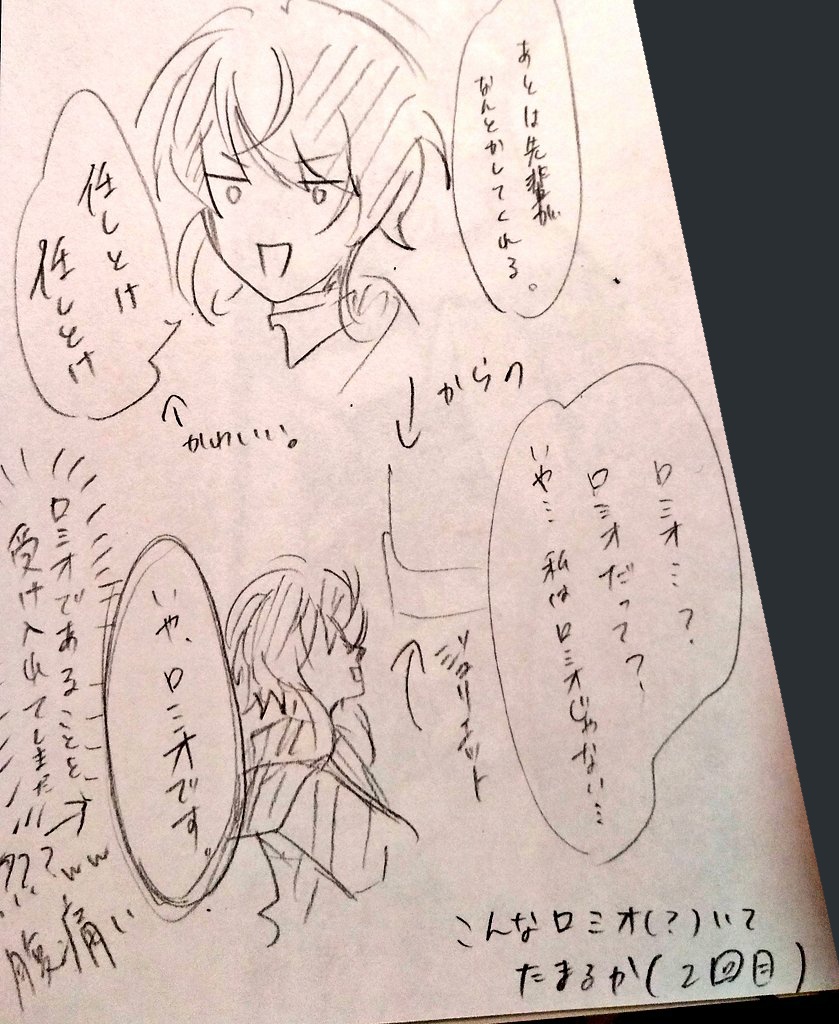 あとは先輩が
なんとかしてくれる。
任しとけ
任しとけ
↑かわいい。
↓からの
ロミオ…?
ロミオだって?
いや…私はロミオじゃない…
ジュリエット
いや、ロミオです。
ロミオであることを
受け入れてしまった!!!
???ww
腹痛い
こんなロミオ(?)いて
たまるか(2回目)